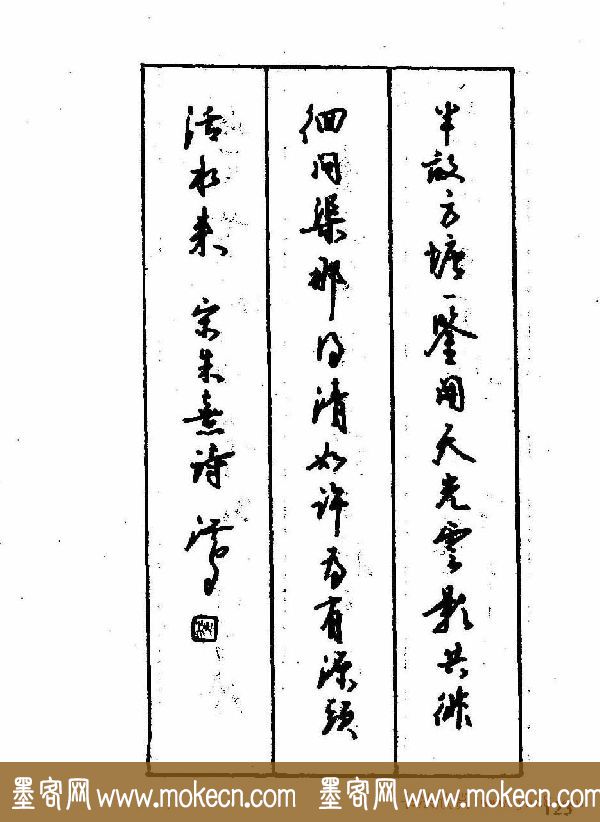 半畝方塘一鑒開天光雲影共徘
徊問渠那得清如許為有源頭
活水來 宋朱熹詩
墨客网 www.mokecn.com 墨客网 www.mokecn.com
123